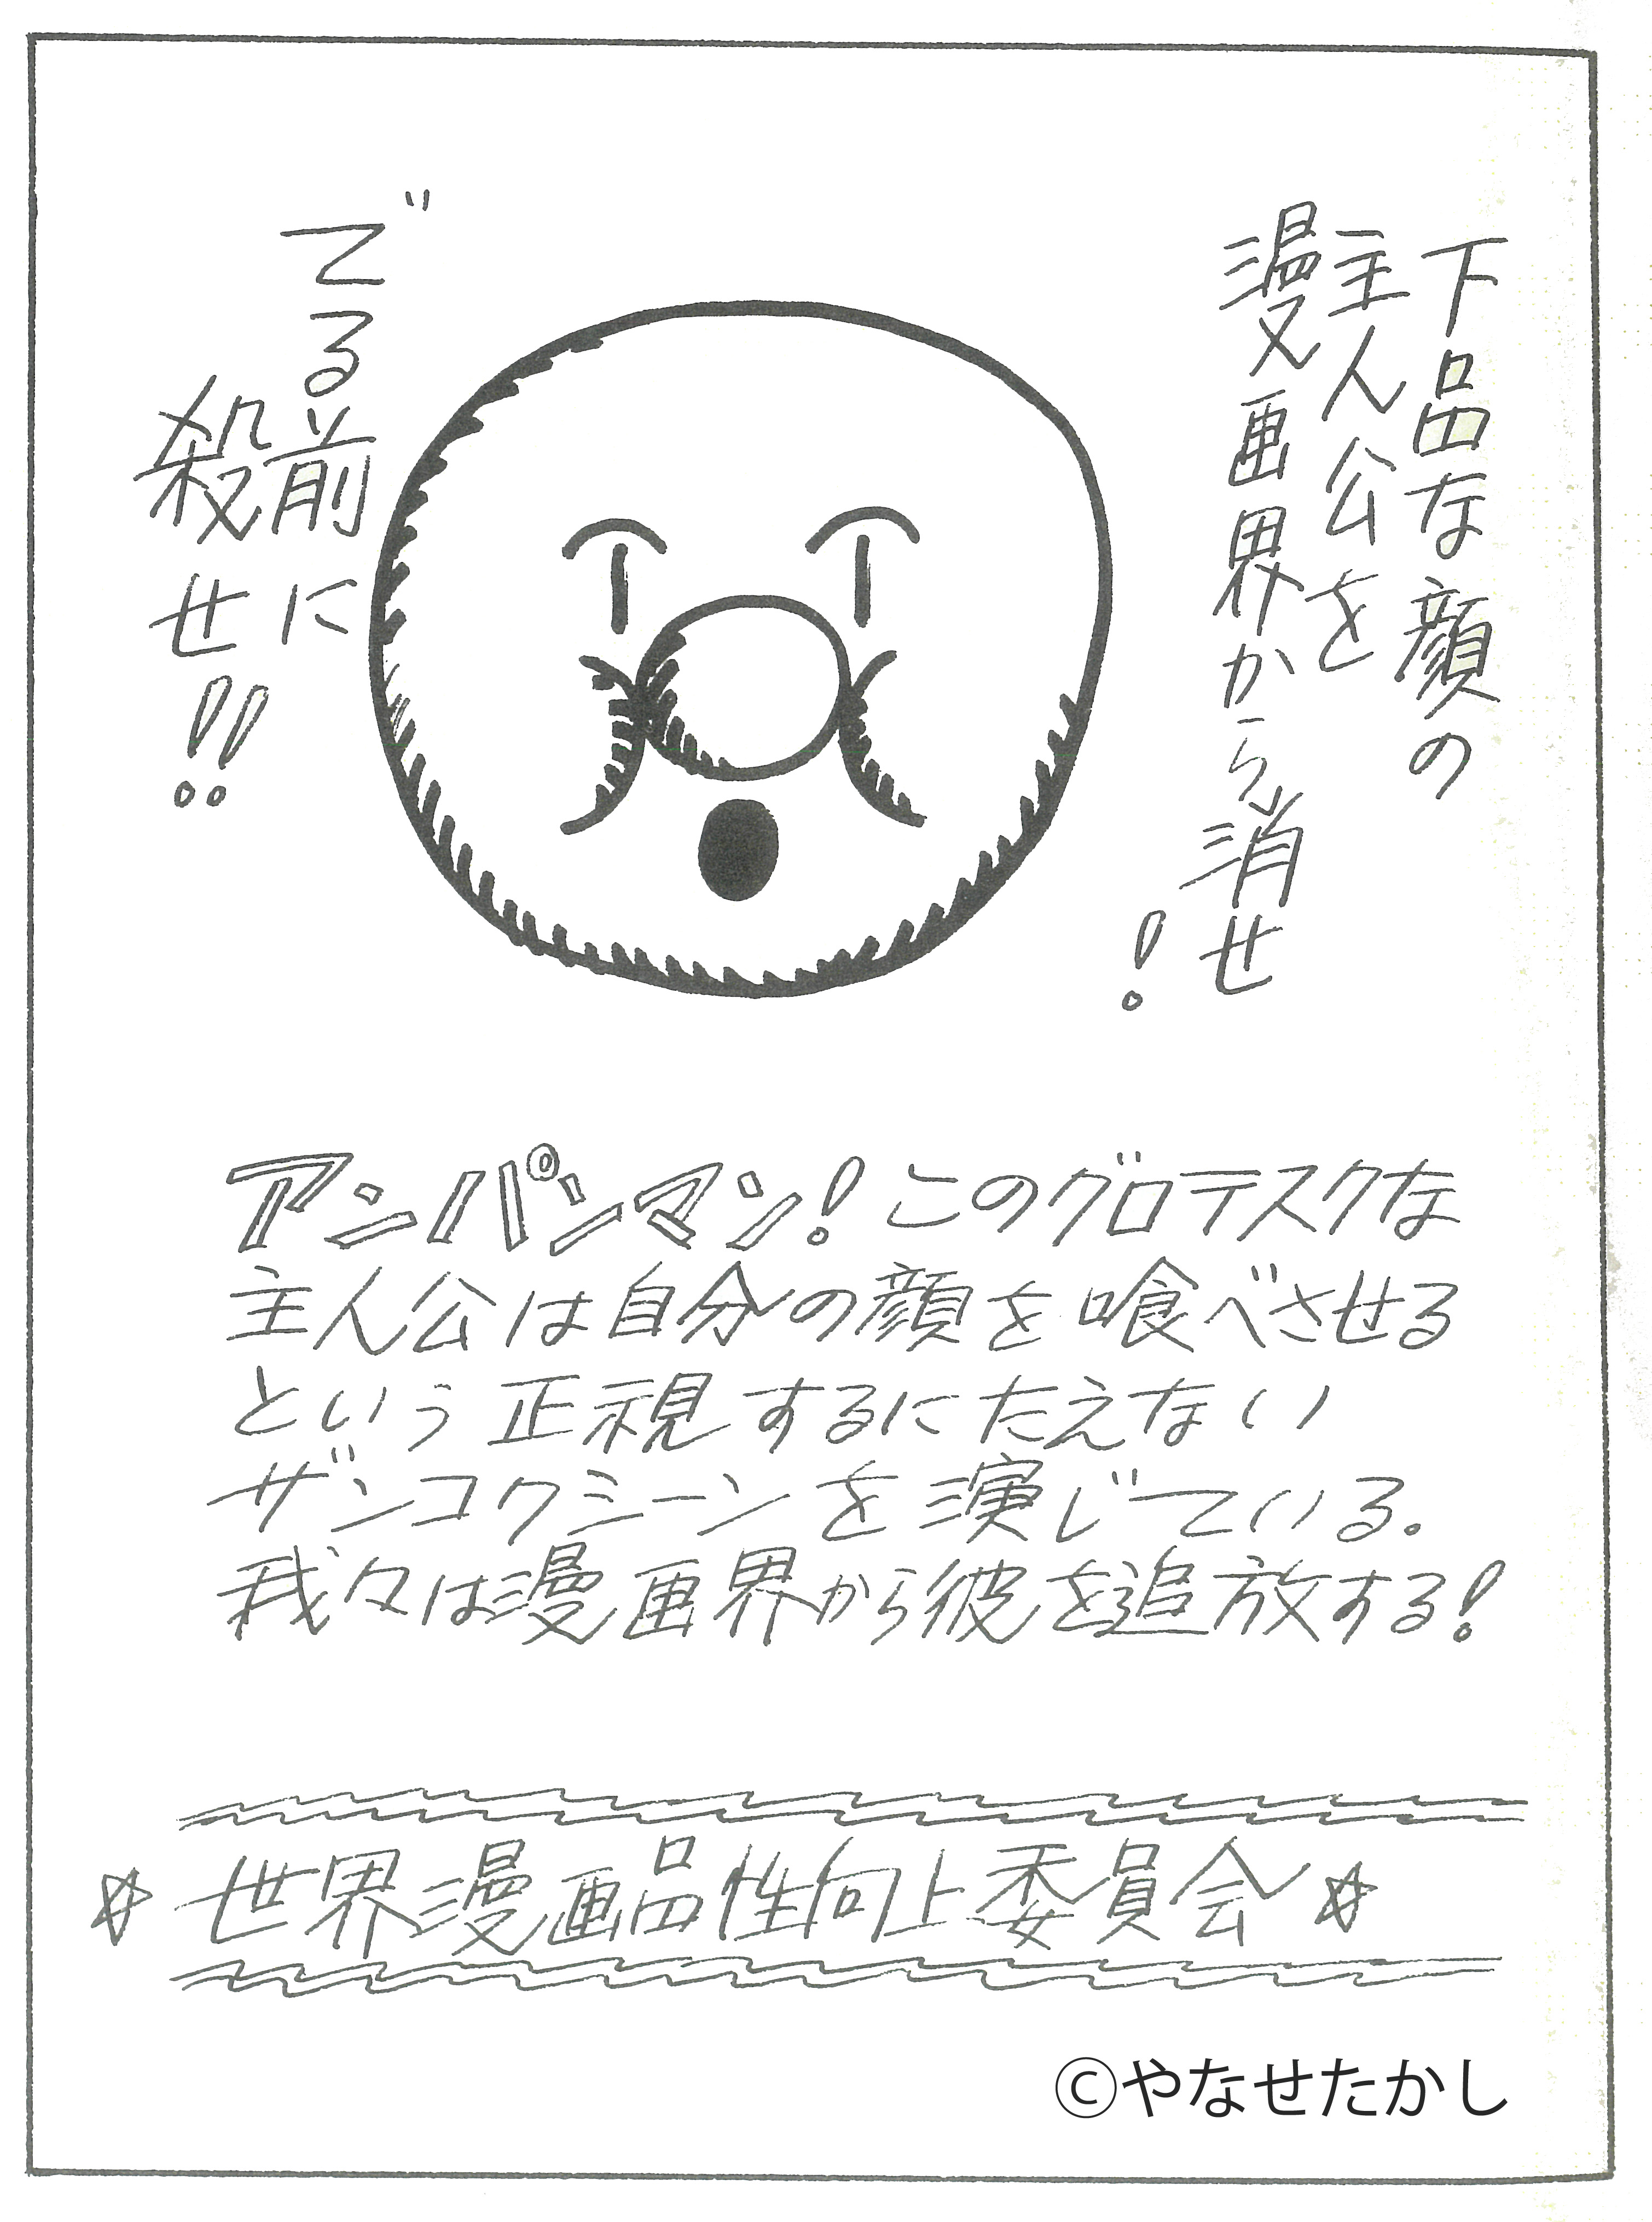 下品な顔の
主人公を
漫画界から消せ
!
でる前に
殺せ!!
アンパンマン!このグロテスクな
主人公は自分の顔を喰べさせる
という正視するにたえない
ザンコクシーンを演じている.
我々は漫画界から彼を追放する!
☆世界漫画品性向上委員会☆
©やなせたかし